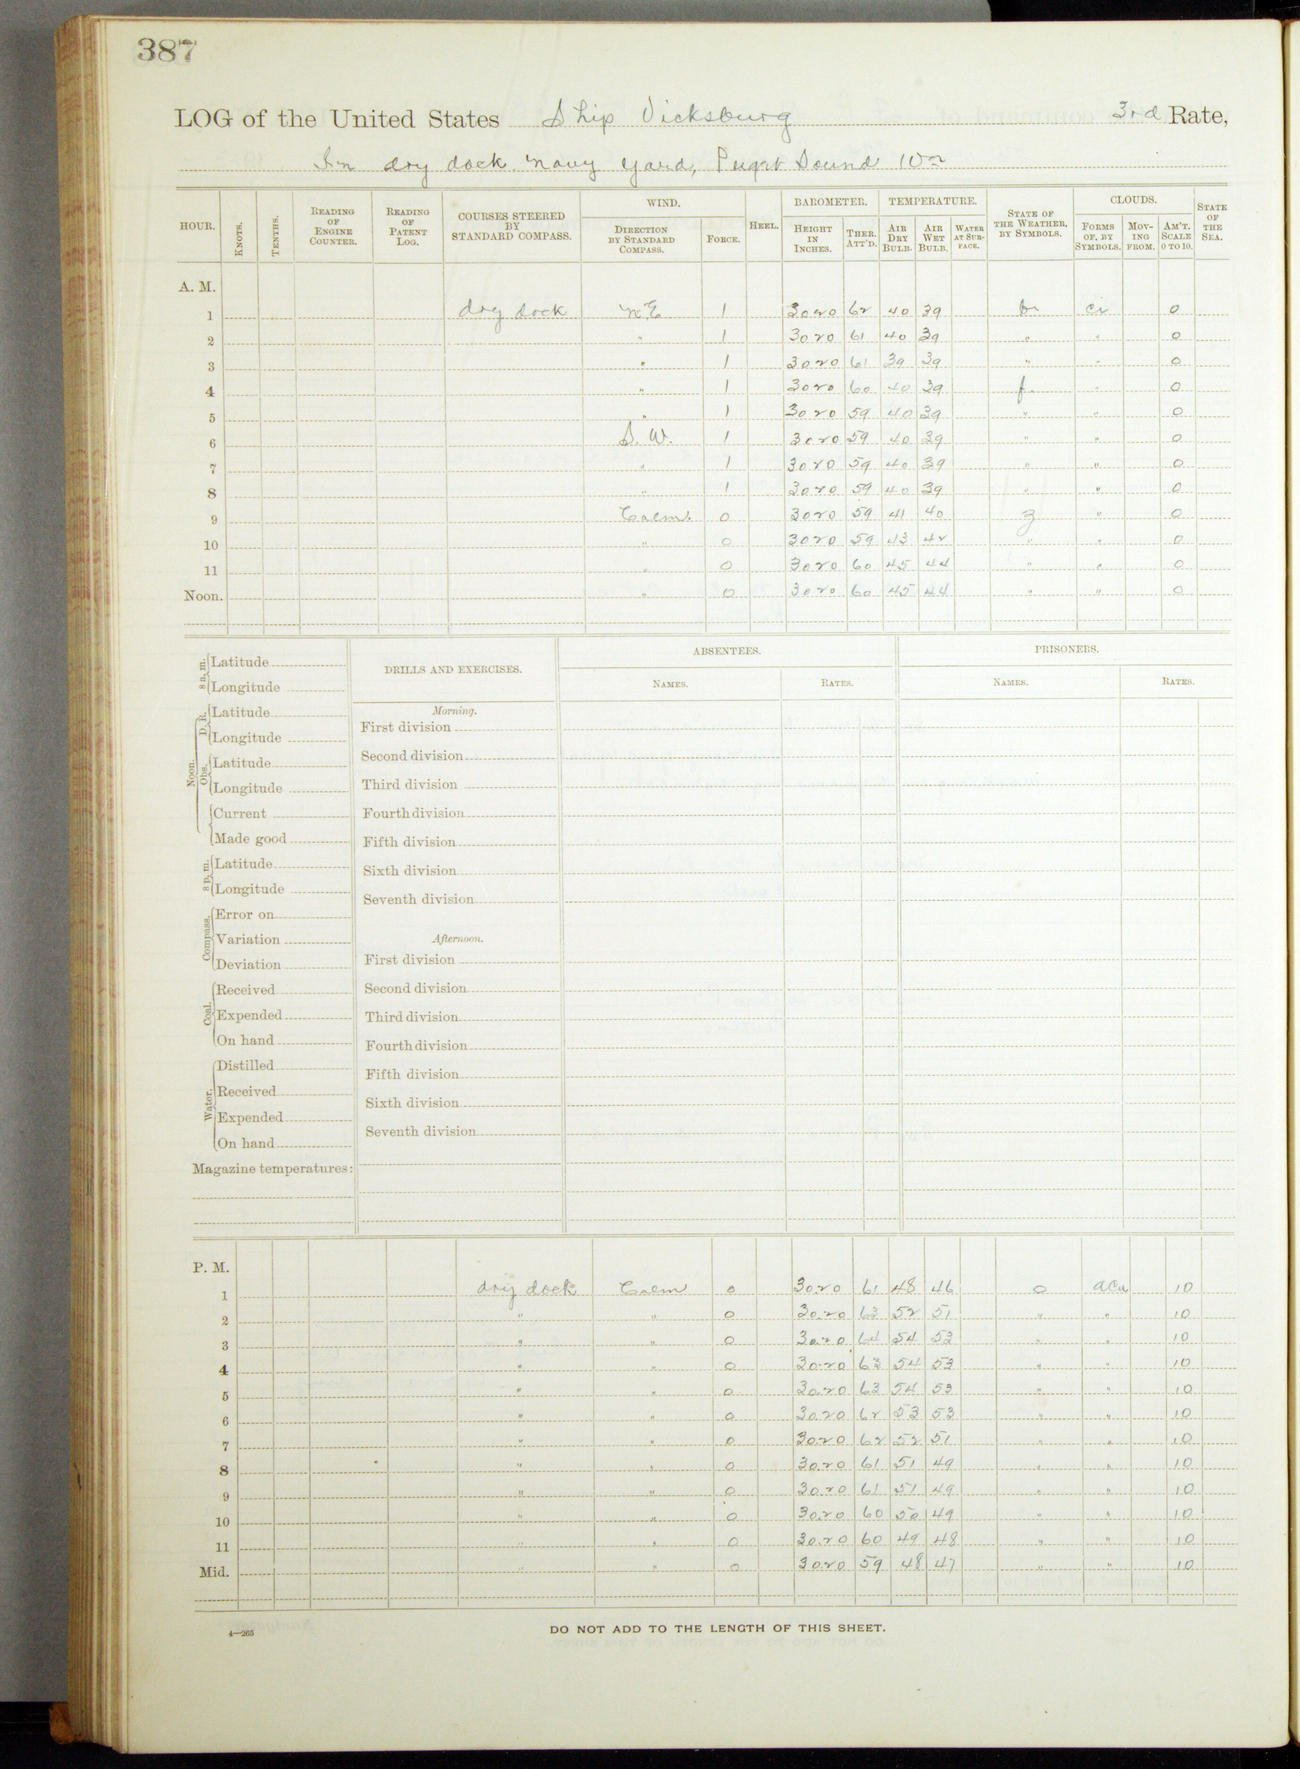 387
LOG of the United States Ship Vicksburg 3rd Rate,
In dry dock Navy Yard, Puget Sound Wn
HOUR. KNOTS. TENTHS. READING OF ENGINE COUNTER. READING OF PATENT LOG. COURSES STEERED BY STANDARD COMPASS. WIND. DIRECTION BY STANDARD COMPASS. FORCE. HEEL. BAROMETER. HEIGHT IN INCHES. THER. ATT'D. TEMPERATURE. AIR DRY BULB. AIR WET BULB. WATER AT SURFACE. STATE OF THE WEATHER, BY SYMBOLS. CLOUDS. FORMS OF, BY SYMBOLS. MOVING FROM. AM'T. SCALE 0 TO 10. STATE OF THE SEA.
A. M.
1 dry dock N.E 1 3020 62 40 39 ci 0
2 " 1 3020 61 40 39 " " 0
3 " 1 3020 61 39 39 " " 0
4 " 1 3020 60 40 39 f " 0
5 " 1 3020 59 40 39 " " 0
6 S. W. 1 3020 59 40 39 " " 0
7 " 1 3020 59 40 39 " " 0
8 " 1 3020 59 40 39 " " 0
9 Calm 0 3020 59 41 40 z " 0
10 " 0 3020 59 43 42 " " 0
11 " 0 3020 60 45 44 " " 0
Noon. " 0 3020 60 45 44 " " 0
8 a. m. Latitude
Longitude
Noon. D. R. Latitude
Longitude
Obs. Latitude
Longitude
Current
Made good
8 p. m. Latitude
Longitude
Compass. Error on
Variation
Deviation
Coal. Received
Expended
On hand
Water. Distilled
Received
Expended
On hand
Magazine temperatures:
DRILLS AND EXERCISES.
Morning.
First division
Second division
Third division
Fourth division
Fifth division
Sixth division
Seventh division
Afternoon.
First division
Second division
Third division
Fourth division
Fifth division
Sixth division
Seventh division
ABSENTEES.
NAMES. RATES.
PRISONERS.
NAMES. RATES.
P. M.
1 dry dock Calm 0 30.20 61 48 46 o acu 10
2 " " 0 30.20 63 52 51 " " 10
3 " " 0 30.20 64 54 53 " " 10
4 " " 0 30.20 63 54 53 " " 10
5 " " 0 30.20 63 54 53 " " 10
6 " " 0 30.20 62 53 53 " " 10
7 " " 0 30.20 62 52 51 " " 10
8 " " 0 30.20 61 51 49 " " 10
9 " " 0 30.20 61 51 49 " " 10
10 " " 0 30.20 60 50 49 " " 10
11 " " 0 30.20 60 49 48 " " 10
Mid. " " 0 30.20 59 48 47 " " 10
4—265
DO NOT ADD TO THE LENGTH OF THIS SHEET.